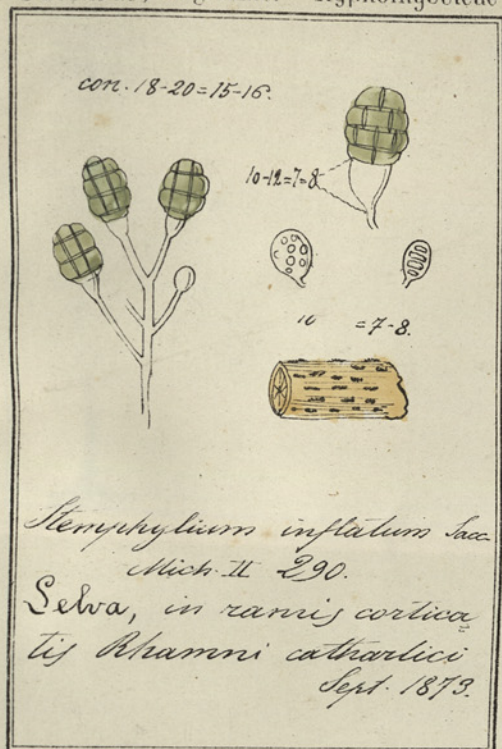 con. 18-20=15-16.
10-12=7=8
10 =7-8.
Stemphylium inflatum Sacc
Mich. II 290.
Selva, in ramis cortica=
tis Rhamni cathartici
Sept. 1873.